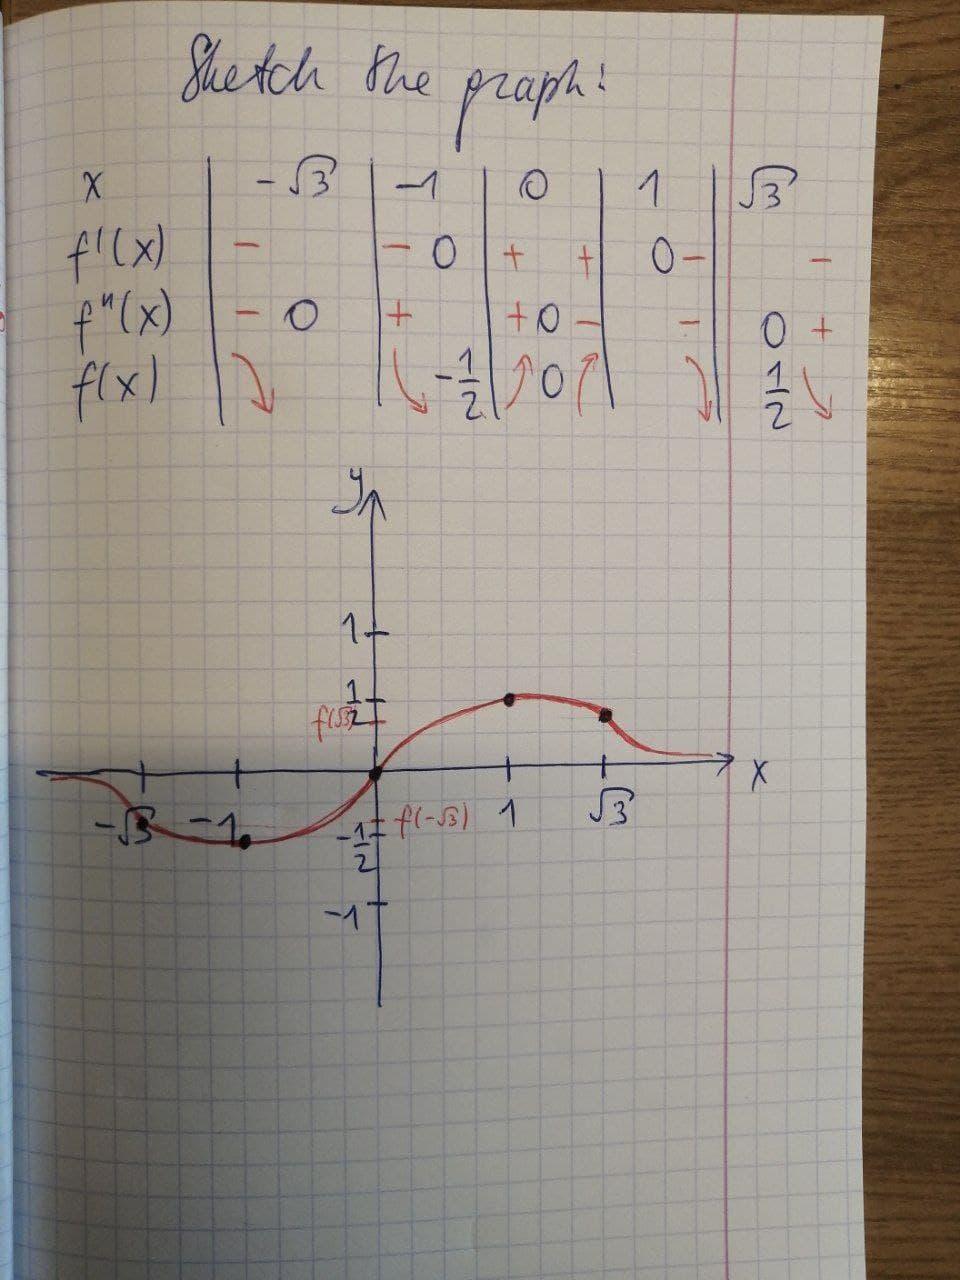 Sketch the graph:
x | -√3 | -1 | 0 | 1 | √3
f'(x) | - | - 0 | + + | 0 - | -
f"(x) | - 0 | + | + 0 - | - | 0 +
f(x) | ↘ | ↘ -1/2 | ↗ 0 ↗ | ↘ | 1/2 ↘
y
1
1/2
f(√3)
x
-√3 -1 f(-√3) 1 √3
-1/2
-1